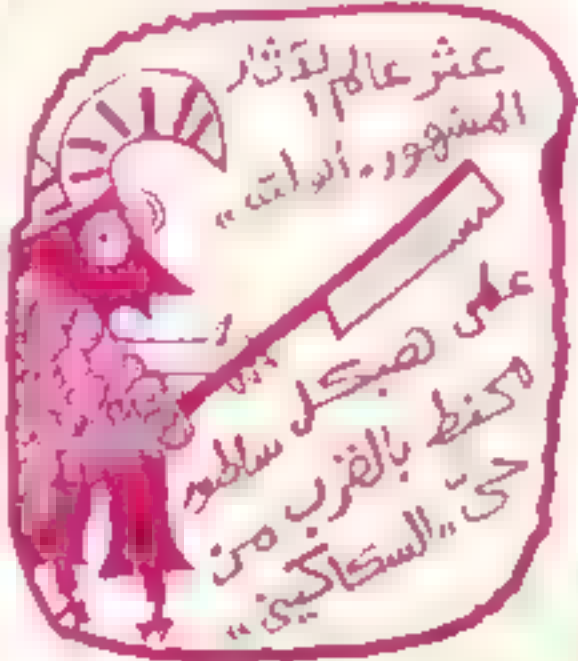 عثر عالم الآثار
المشهور. أبو لته،،
على هيكل ساطور
محنط بالقرب من
حىّ ,,السكاكينى،،